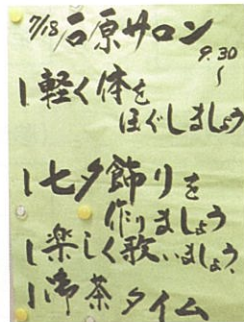 7/18 石原サロン
9.30〜
1 軽く体を
ほぐしましょう
1 七夕飾りを
作りましょう
1 楽しく歌いましょう、
1 喫茶タイム